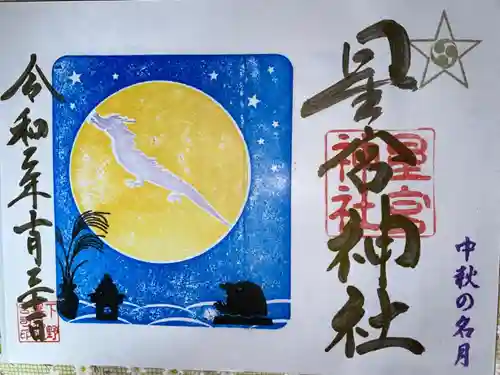 星宮神社
星宮神社
中秋の名月
令和二年十月三十一日
下野